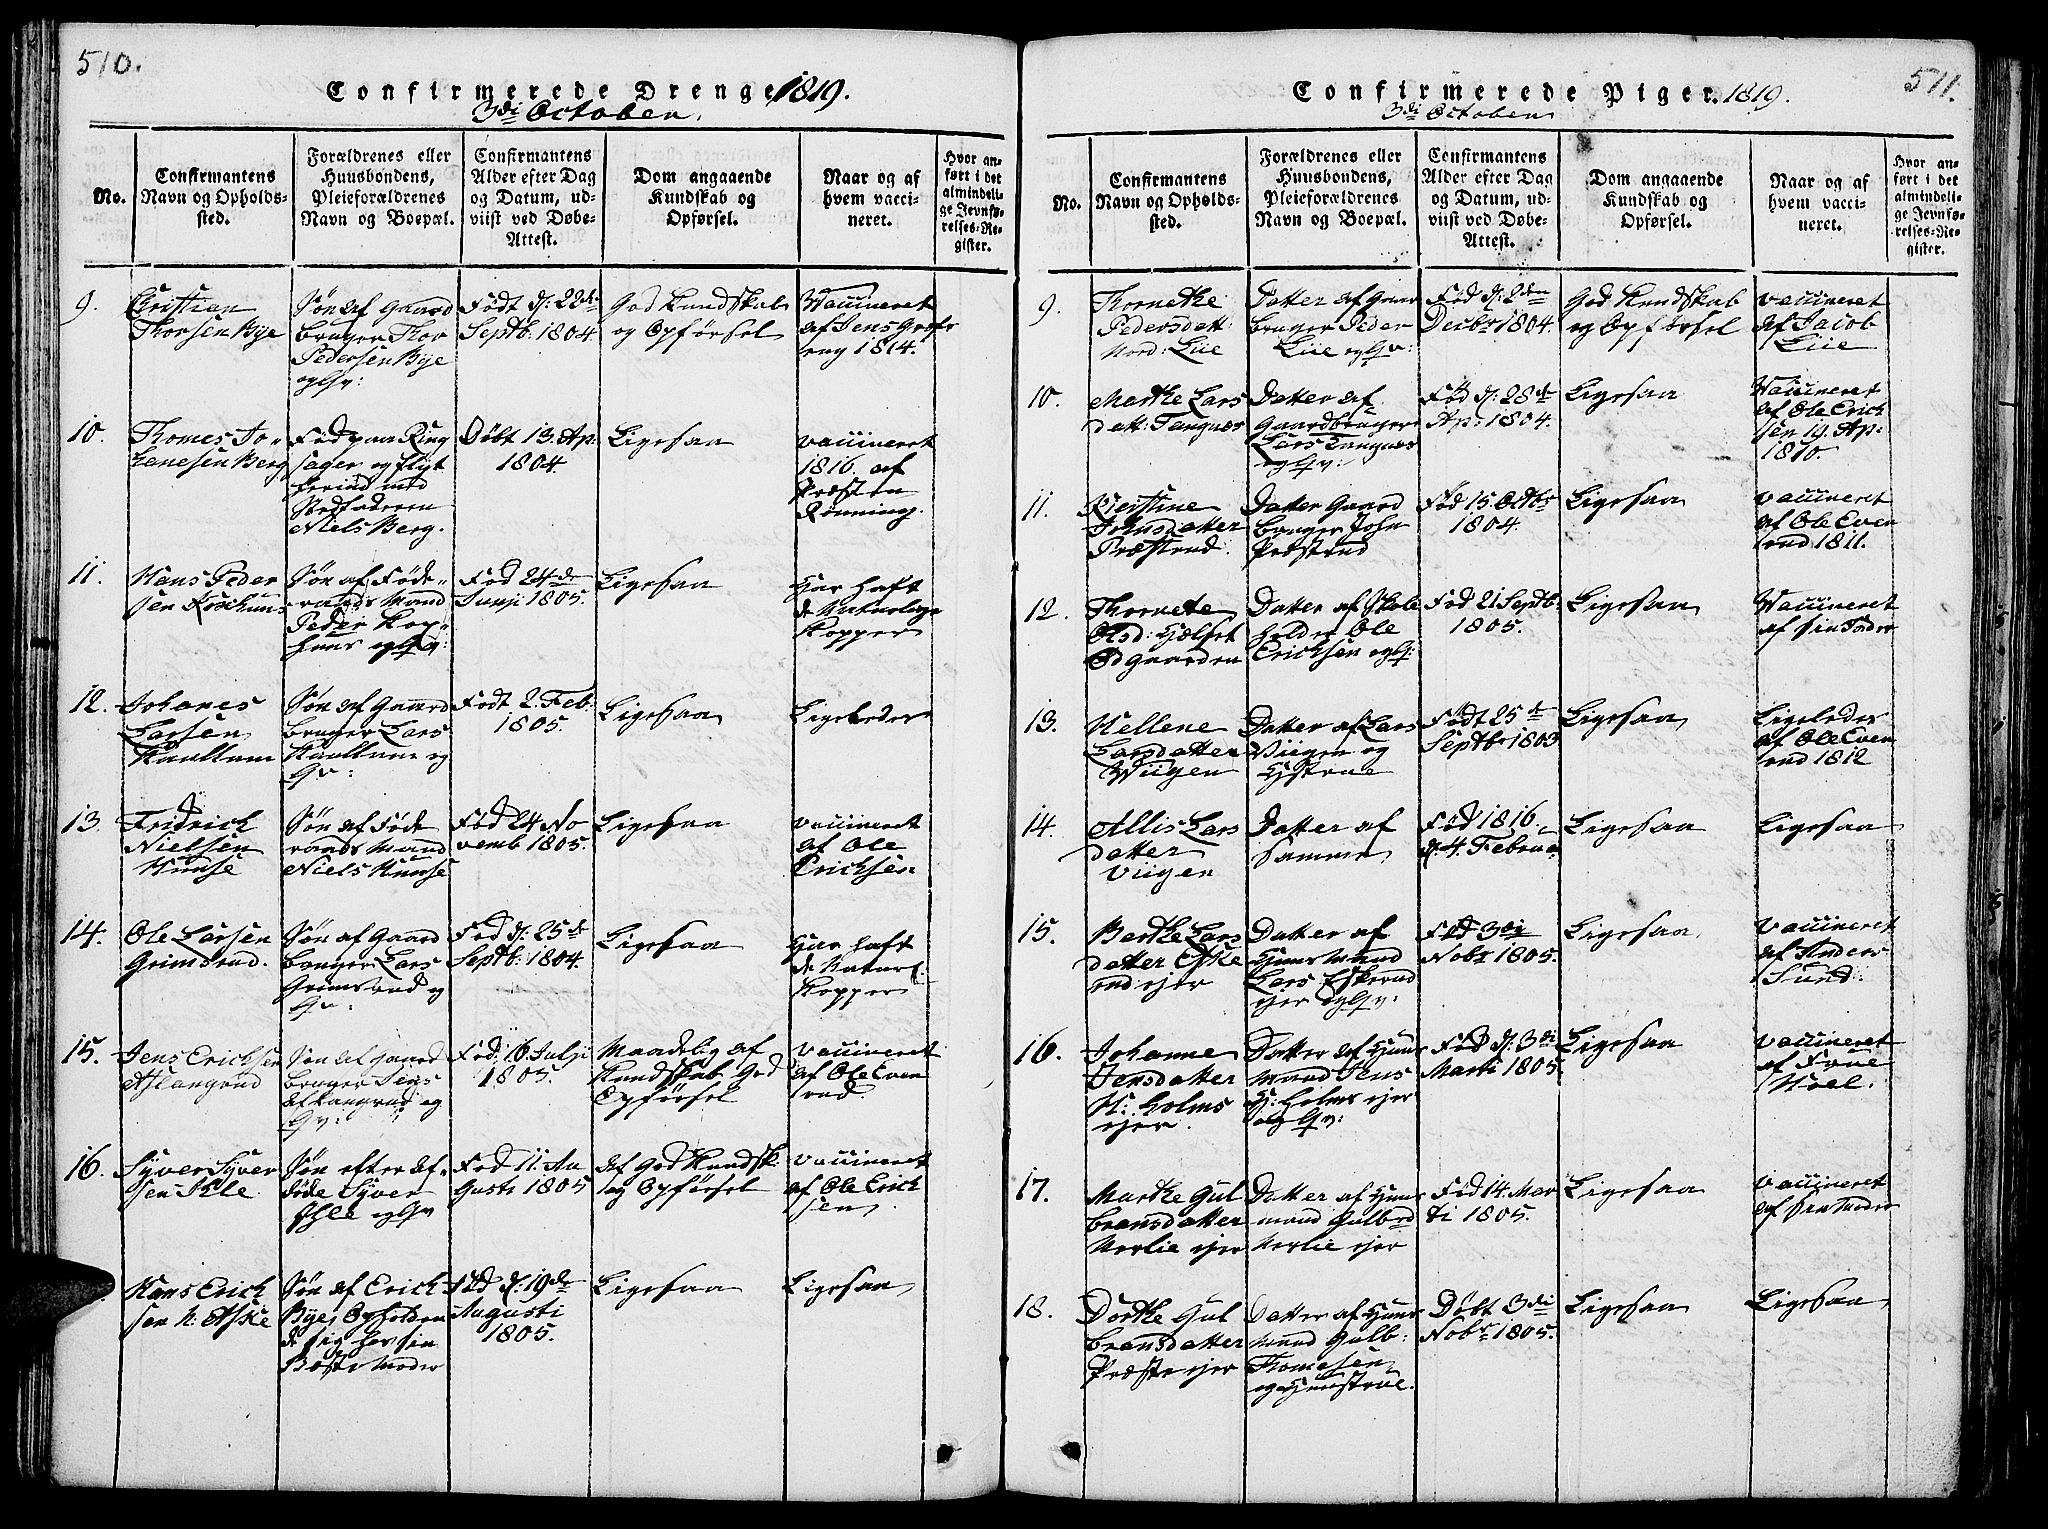 510.
Confirmerede Drenge 1819.
3di October.
No.
Confirmantens
Navn og Opholds-
sted.
Forældrenes eller
Huusbondens,
Pleieforældrenes
Navn og Boepæl.
Confirmantens
Alder efter Dag
og Datum, ud-
viist ved Døbe-
Attest.
Dom angaaende
Kundskab og
Opførsel.
Naar og af
hvem vacci-
neret.
Hvor an-
ført i det
almindeli-
ge Jevnfø-
relses-Re-
gister.
9.
Christian
Thorsen Bye
Søn af Gaard
bruger Thor
Pedersen Bye
og Hv:
Født d: 22de
Septb: 1804
God Kundskab
og Opførsel
Vaccineret
af Jens
eng 1814.
10.
Thomes Jo-
hanesen Berg
Fød paa Ring
sager og flyt
herind med
Stedfaderen
Niels Berg.
Døbt 13. Ap.
1804.
Ligesaa
vaccineret
1816. af
Præsten
Rønning.
11.
Hans Peder
sen
Søn af Føde-
raads Mand
Peder
huus og Hv:
Fød 24de
Junji 1805.
Ligesaa
Har haft
de Naturlige
Kopper
12.
Johanes
Larsen
Søn af Gaard
bruger Lars
og
Hv:
Født 2. Feb:
1805.
Ligesaa
Ligeledes
13.
Fridrich
Nielsen
Hunse
Søn af Føde
raads Mand
Niels Hunse
Fød 24 No
vemb 1805.
Ligesaa
vaccineret
af Ole
Ericksen
14.
Ole Larsen
Grimsrud.
Søn af Gaard
bruger Lars
Grimsrud og
Hv:
Fød d: 25de
Septb: 1804.
Ligesaa
Har haft
de Naturl:
Kopper
15.
Jens Ericksen
Aslangrud
Søn af Gaard
bruger Jens
Aslangrud og
Hv:
Fød: 16 Julji
1805.
Maadelig af
Kundskab God
Opførsel
vaccineret
af Ole Even
rud.
16.
Syver Syver
sen Ihle
Søn efter af-
døde Syver
Ihle og Hv
Fød 11. Au
gusti 1805
af God Kundsk:
og Opførsel
vaccineret
af Ole Erick
sen
Hans Erick
sen N: Aske
Søn af Erick
Bye, Opholden
de sig hos sin
Beste Moder
Fød d: 19de
Augusti
1805.
Ligesaa
Ligesaa
511.
Confirmerede Piger. 1819.
3di October
No.
Confirmantens
Navn og Opholds-
sted.
Forældrenes eller
Huusbondens,
Pleieforældrenes
Navn og Boepæl.
Confirmantens
Alder efter Dag
og Datum, ud-
viist ved Døbe-
Attest.
Dom angaaende
Kundskab og
Opførsel.
Naar og af
hvem vacci-
neret.
Hvor an-
ført i det
almindeli-
ge Jevnfø-
relses-Re-
gister.
9.
Thornethe
Pedersdatt:
Nord: Liie
Datter af Gaar
bruger Peder
Liie og Hv:
Fød d: 2den
Decbr 1804.
God Kundskab
og Opførsel
vaccineret
af Jacob
Liie
10.
Marthe Lars
datt: Tangnes
Datter af
Gaardbruger
Lars Tangnes
og Hv:
Fød d: 28de
Ap: 1804.
Ligesaa
Vaccineret
af Ole Erick
sen 19. Ap:
1810.
11.
Kierstine
Johnsdatter
Præstrud
Datter Gaard
bruger John
Præstrud
Fød 15. Octbr
1804.
Ligesaa
vaccineret
af Ole Even
rud 1811.
12.
Thornete
Olsd: Hjelset
Ødgaarden
Datter af Skole
holder Ole
Ericksen og Hv:
Fød 21 Septb:
1805.
Ligesaa
Vaccineret
af sin Fader
13.
Hellene
Larsdatter
Wiigen
Datter af Lars
Viigen og
Hustrue
Født 25de
Septbr 1803
Ligesaa
Ligeledes
af Ole Even
rud 1812
14.
Allis Lars
datter
Viigen
Datter af
Samme
Fød 1816.
d: 4. Februa
Ligesaa
Ligesaa
15.
Berthe Lars
datter Eske
rud ejer
Datter af
Huus Mand
Lars Eskerud
ejer og Hv:
Fød 3di
Nobr 1805.
Ligesaa
vaccineret
af Anders
Sund.
16.
Johanne
Jensdatter
N: Holms
ejer.
Datter af Huus
Mand Jens
N: Holms ejer
og Hv:
Fød d: 3di
Marti 1805.
Ligesaa
vaccineret
af
Hoel.
17.
Marthe Gul
bransdatter
Norlie ejer
Datter af Huus
mand Gulbrd
Norlie ejer
Fød 14. Mar
ti 1805.
Ligesaa
vaccineret
af sin Moder
18.
Dorthe Gul
bransdatter
Præste ejer
Datter af Huus
mand Gulb:
Thomesen
og Hustrue.
Døbt 3di
Nobr 1805.
Ligesaa
Ligesaa